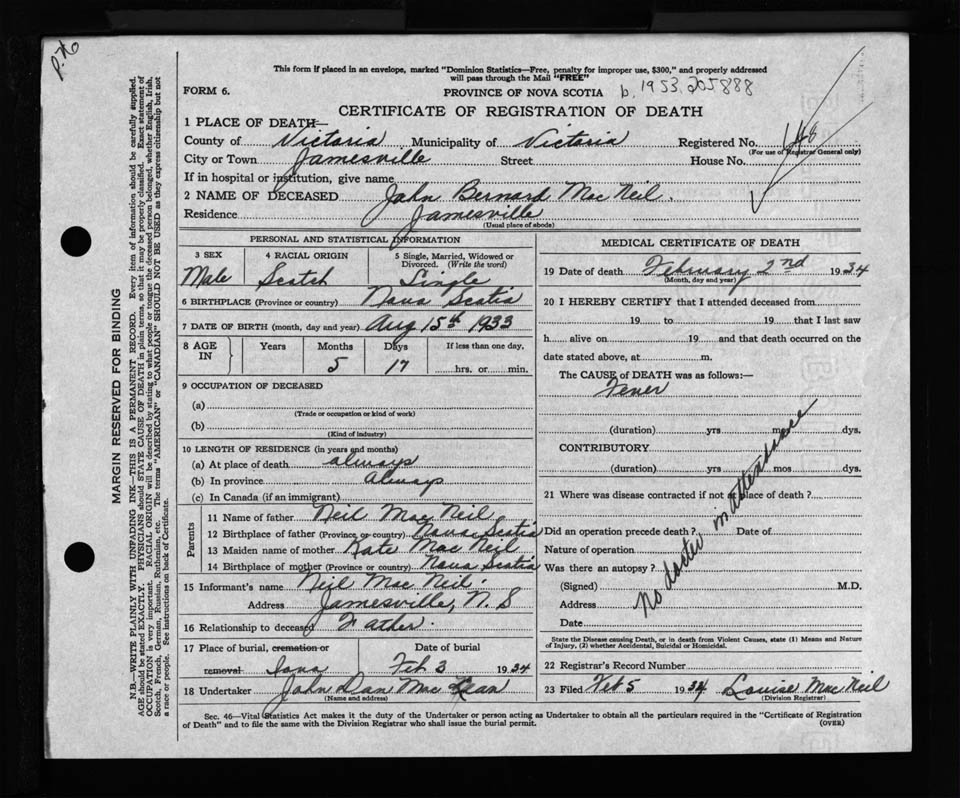 P.X6
This form if placed in an envelope, marked "Dominion Statistics—Free, penalty for improper use, $300," and properly addressed
will pass through the Mail "FREE"
FORM 6. PROVINCE OF NOVA SCOTIA b. 1953.205888
CERTIFICATE OF REGISTRATION OF DEATH
1 PLACE OF DEATH—
County of Victoria Municipality of Victoria Registered No. 148
(For use of Registrar General only)
City or Town Jamesville Street House No.
If in hospital or institution, give name
2 NAME OF DECEASED John Bernard Mac Neil.
Residence Jamesville
(Usual place of abode)
PERSONAL AND STATISTICAL INFORMATION
3 SEX 4 RACIAL ORIGIN 5 Single, Married, Widowed or
Divorced. (Write the word)
Male Scotch Single
6 BIRTHPLACE (Province or country) Nova Scotia
7 DATE OF BIRTH (month, day and year) Aug 15th 1933
8 AGE IN Years Months Days If less than one day,
5 17 hrs. or min.
9 OCCUPATION OF DECEASED
(a)
(Trade or occupation or kind of work)
(b)
(Kind of industry)
10 LENGTH OF RESIDENCE (in years and months)
(a) At place of death always
(b) In province Always
(c) In Canada (if an immigrant)
Parents
11 Name of father Neil Mac Neil
12 Birthplace of father (Province or country) Nova Scotia
13 Maiden name of mother Kate Mac Neil
14 Birthplace of mother (Province or country) Nova Scotia
15 Informant's name Neil Mac Neil.
Address Jamesville, N. S
16 Relationship to deceased Father.
17 Place of burial, cremation or Date of burial
removal Iona Feb 3 1934
18 Undertaker John Dan Mac Lean
(Name and address)
MEDICAL CERTIFICATE OF DEATH
19 Date of death February 2nd 1934
(Month, day and year)
20 I HEREBY CERTIFY that I attended deceased from
19 to 19 that I last saw
h alive on 19 and that death occurred on the
date stated above, at m.
The CAUSE of DEATH was as follows:—
Fever
(duration) yrs mos dys.
CONTRIBUTORY
(duration) yrs mos dys.
21 Where was disease contracted if not at place of death ?
Did an operation precede death ? Date of
Nature of operation
Was there an autopsy ?
(Signed) M.D.
Address
Date
No doctor in attendance
State the Disease causing Death, or in death from Violent Causes, state (1) Means and Nature
of Injury, (2) whether Accidental, Suicidal or Homicidal.
22 Registrar's Record Number
23 Filed Feb 5 1934 Louise Mac Neil
(Division Registrar)
Sec. 46—Vital Statistics Act makes it the duty of the Undertaker or person acting as Undertaker to obtain all the particulars required in the "Certificate of Registration
of Death" and to file the same with the Division Registrar who shall issue the burial permit. (OVER)
MARGIN RESERVED FOR BINDING
N.B.—WRITE PLAINLY WITH UNFADING INK—THIS IS A PERMANENT RECORD. Every item of information should be carefully supplied.
AGE should be stated EXACTLY. PHYSICIANS should STATE CAUSE OF DEATH in plain terms, so that it may be properly classified. Exact statement of
OCCUPATION is very important. RACIAL ORIGIN will be described by stating to what people or tongue the deceased person belonged, whether English, Irish,
Scotch, French, German, Russian, Ruthenian, etc. The terms "AMERICAN" or "CANADIAN" SHOULD NOT BE USED as they express citizenship but not
a race or people. See instructions on back of Certificate.